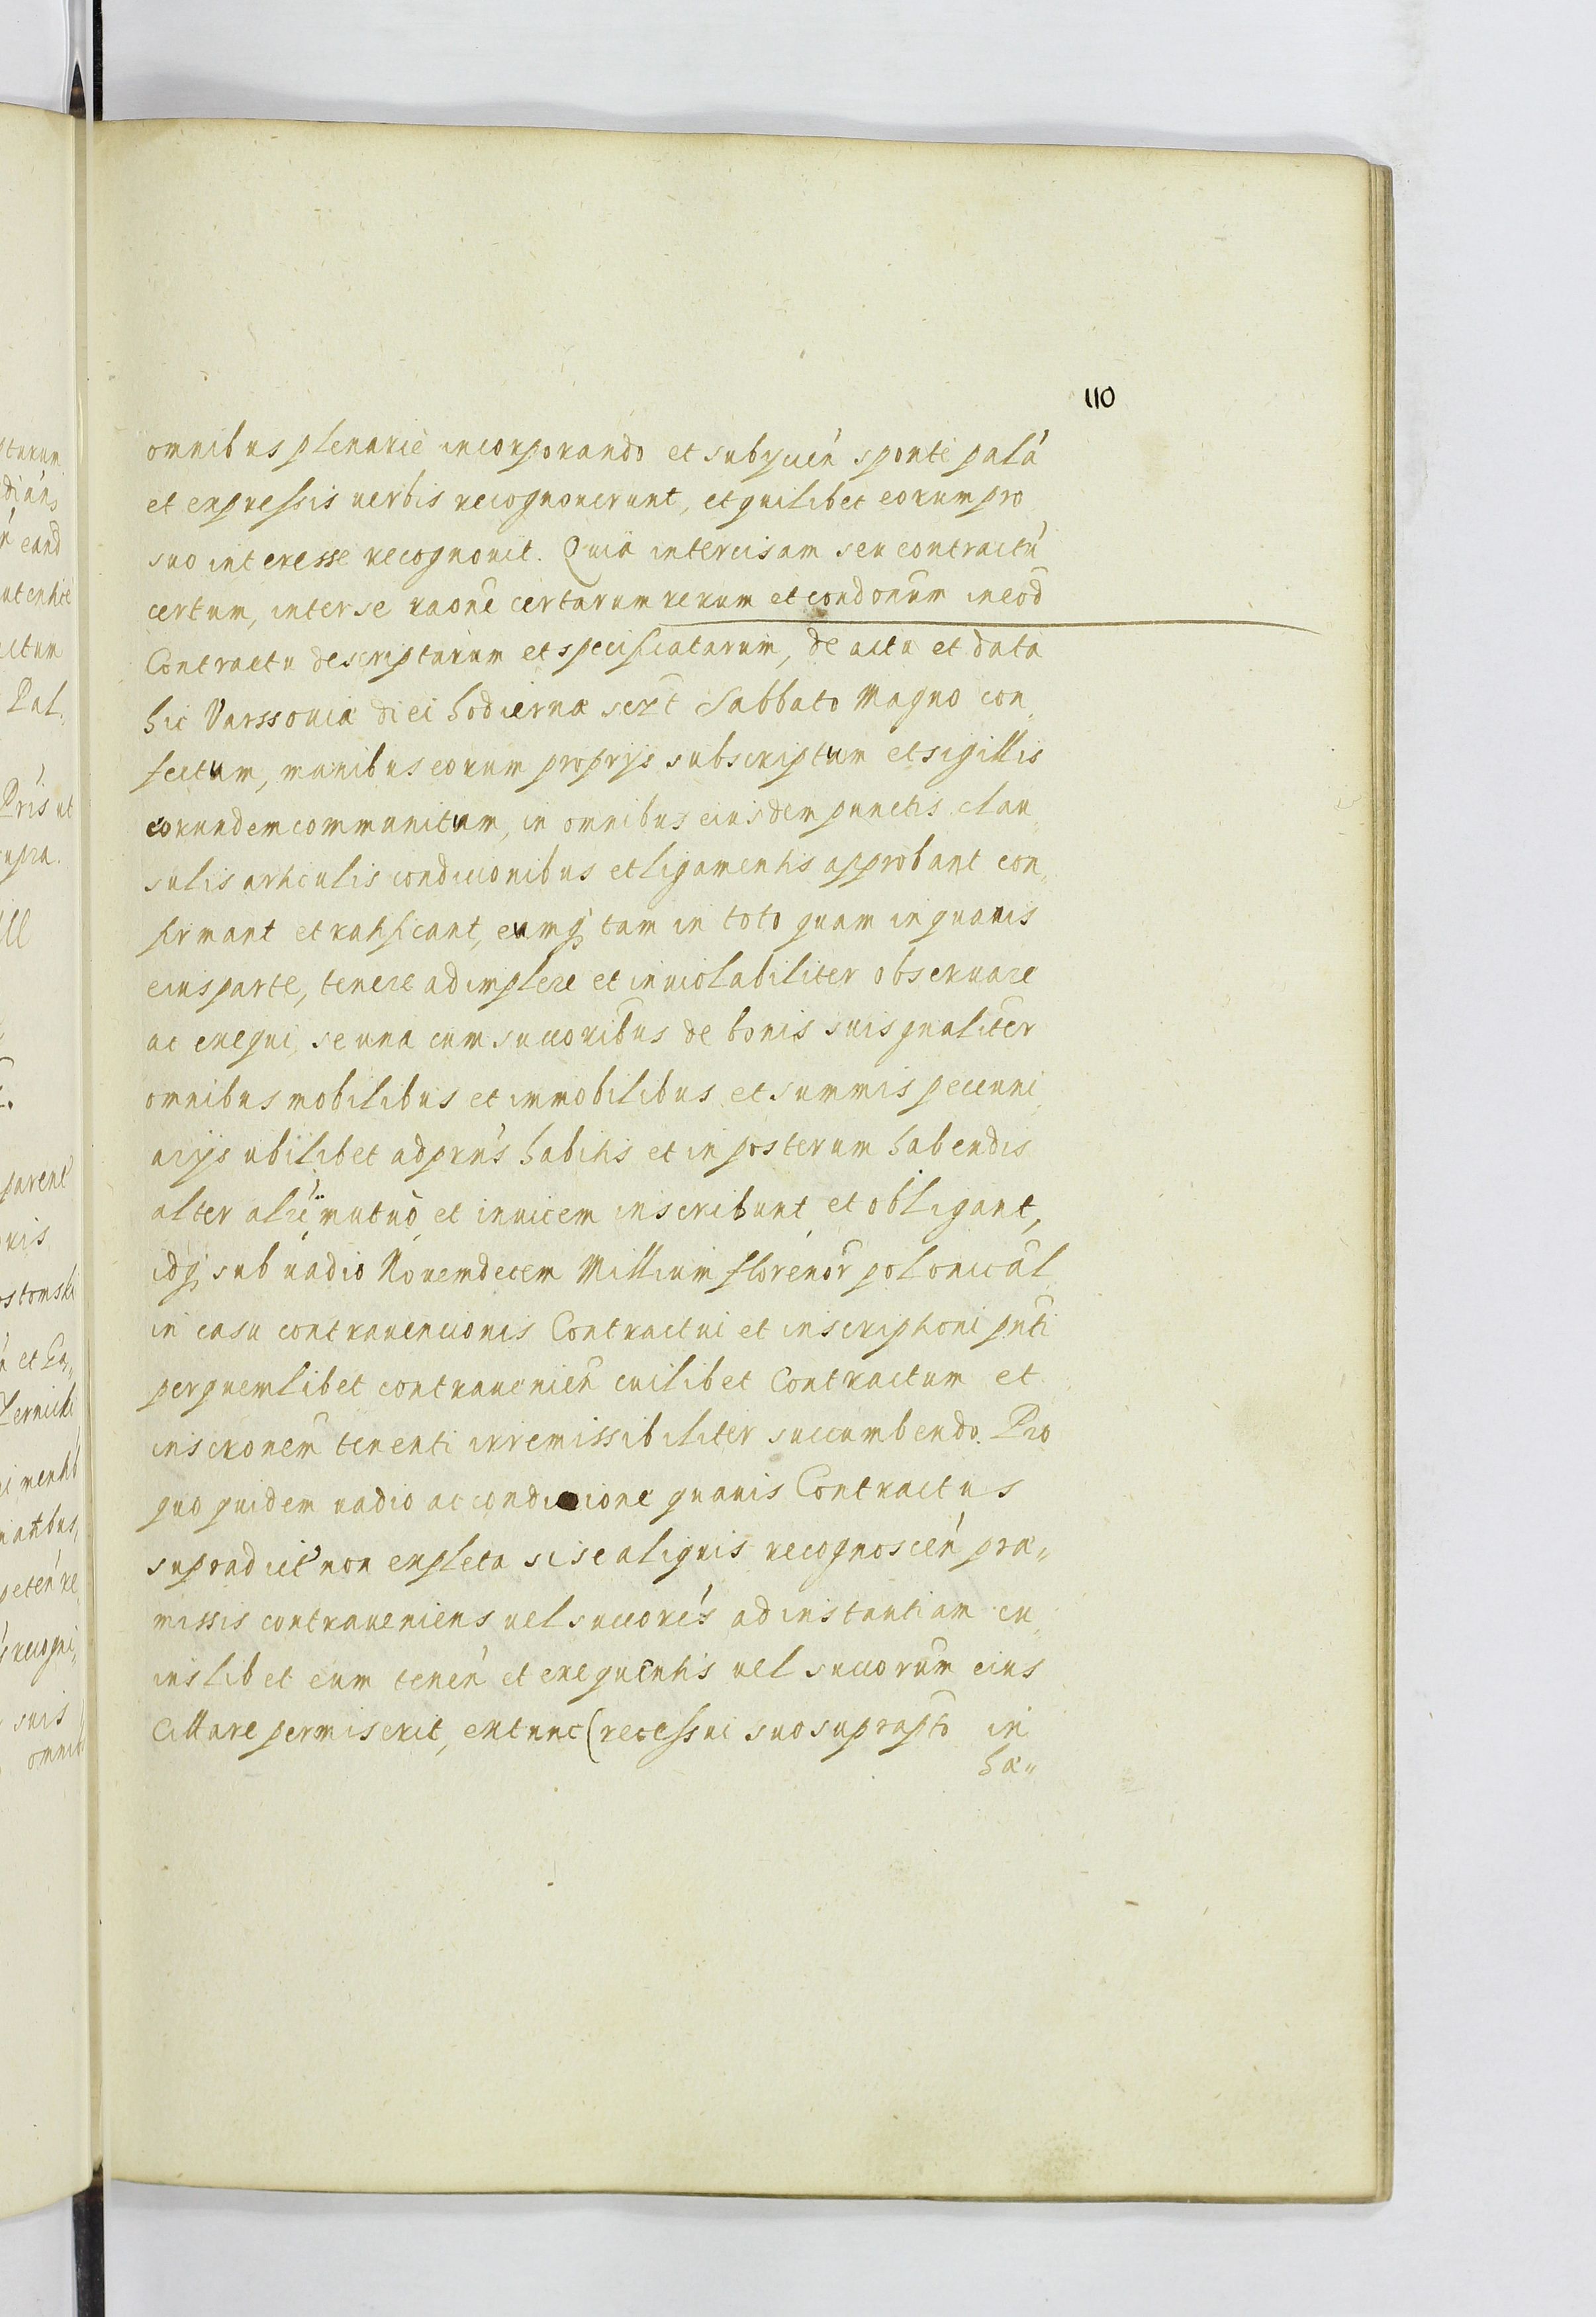 110
omnibus plenariè incorporando et subycień sponte palá
et expressis verbis recognouerunt, et quilibet eorum pro
suo interesse recognouit. Quia intercisam seu contractú
certum, inter se raone certarum rerum et condonum in eod
Contractu descriptarum et specificatarum, de actu et data
hic Varssouiæ diei hodiernæ Sabbato Magno con„
fectum, manibus eorum proprijs subscriptum et sigillis
eorundem communitum, in omnibus eiusdem punctis clau„
sulis articulis condicionibus et ligamentis approbant con„
firmant et ratificant, eumq tam in toto quam in quauis
eius parte, tenere adimplere et inuiolabiliter obseruare
ac exequi, se una cum succoribus de bonis suis gnaliter
omnibus mobilibus et immobilibus et summis pecuni„
arijs ubilibet ad prns habitis et in posterum habendis
alter alri mutuò et inuicem inscribunt et obligant,
idq sub uadio Nouemdecem Millium florenor polonical
in casu contrauencionis Contractui et inscriptioni pnti
per quemlibet contrauenień cuilibet Contractum et
inscronem tenenti irremissibiliter succumbendo. Pro
quo quidem uadio ac condicione quauis Contractus
supradict non expleta si se aliquis recognosceń præ„
missis contraueniens uel succores ad instantiam cu„
iuslibet eum teneń et exequentis uel succorum eius
Cittare permiserit, extunc (recessui suo suprapto in
hæ„
pturum
eand
actum
Pal.
Pris ut
supra.
parent
uis
ostomski
et Ea„
suis
omnib